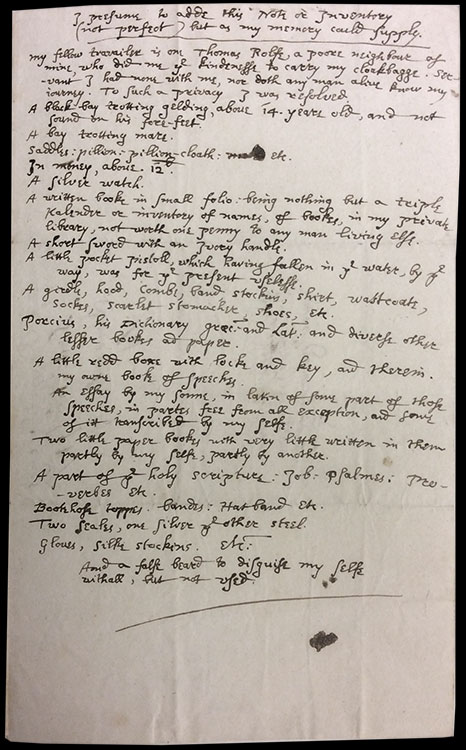 I presume to adde this Note or Inventory
(not perfect) but as my memory could supply.
my fellow travailer is one Thomas Rolfe, a poore neighbour of
mine, who did me yᵉ kindenesse to carry my cloakbagge. ser-
-vant I had none with me, nor doth any man alive know my
iourney. To such a privacy I was resolved.
A black bay trotting gelding, above 14. years old, and not
sound on his fore-feet.
A bay trotting mare.
Saddles: pillion: pillion-cloath: etc.
In money, above. 12ˡⁱ
A silver watch.
A written booke in small folio: being nothing but a triple
Kalender or inventory of names, of bookes, in my private
library, not worth one penny to any man living else.
A short sword with an Ivory handle.
A little pocket pistoll, which having fallen in yᵉ water, by yᵉ
way, was for yᵉ present uselesse.
A girdle, hood, combe, band stockins, shirt, wastcoate,
sockes, scarlet stomacher, shoes, etc.
Porcius, his Dictionary græc: and Lat: and diverse other
lesser bookes and paper.
A little redd boxe with locke and key, and therein.
my owne booke of speeches.
An essay by my sonne, in latin of some part of those
speeches, in partes free from all exception, and some
of itt transcribed by my selfe.
Two little paper bookes with very little written in them
partly by my selfe, partly by another.
A part of yᵉ holy scripture: Job: Psalmes: Pro-
-verbes etc.
Bootehose toppes. bandes: Hatband etc.
Two seales, one silver yᵉ other steel.
Gloves, silke stockins. etc:
And a false beard to disguise my selfe
withall, but not used.